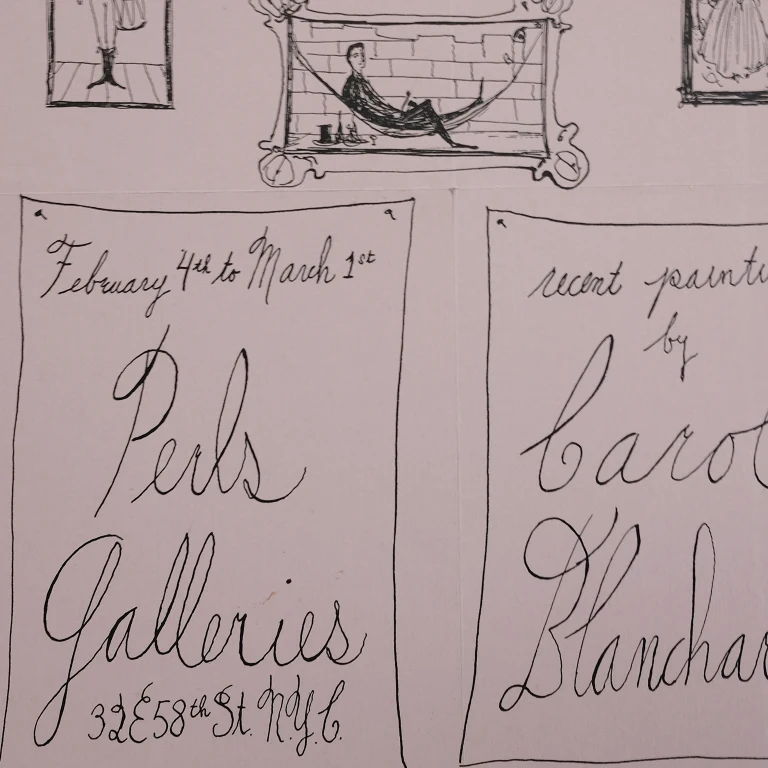 February 4th to March 1st
Perls
Galleries
32 E 58th St. N.Y.C.
recent painti
by
Carol
Blanchar